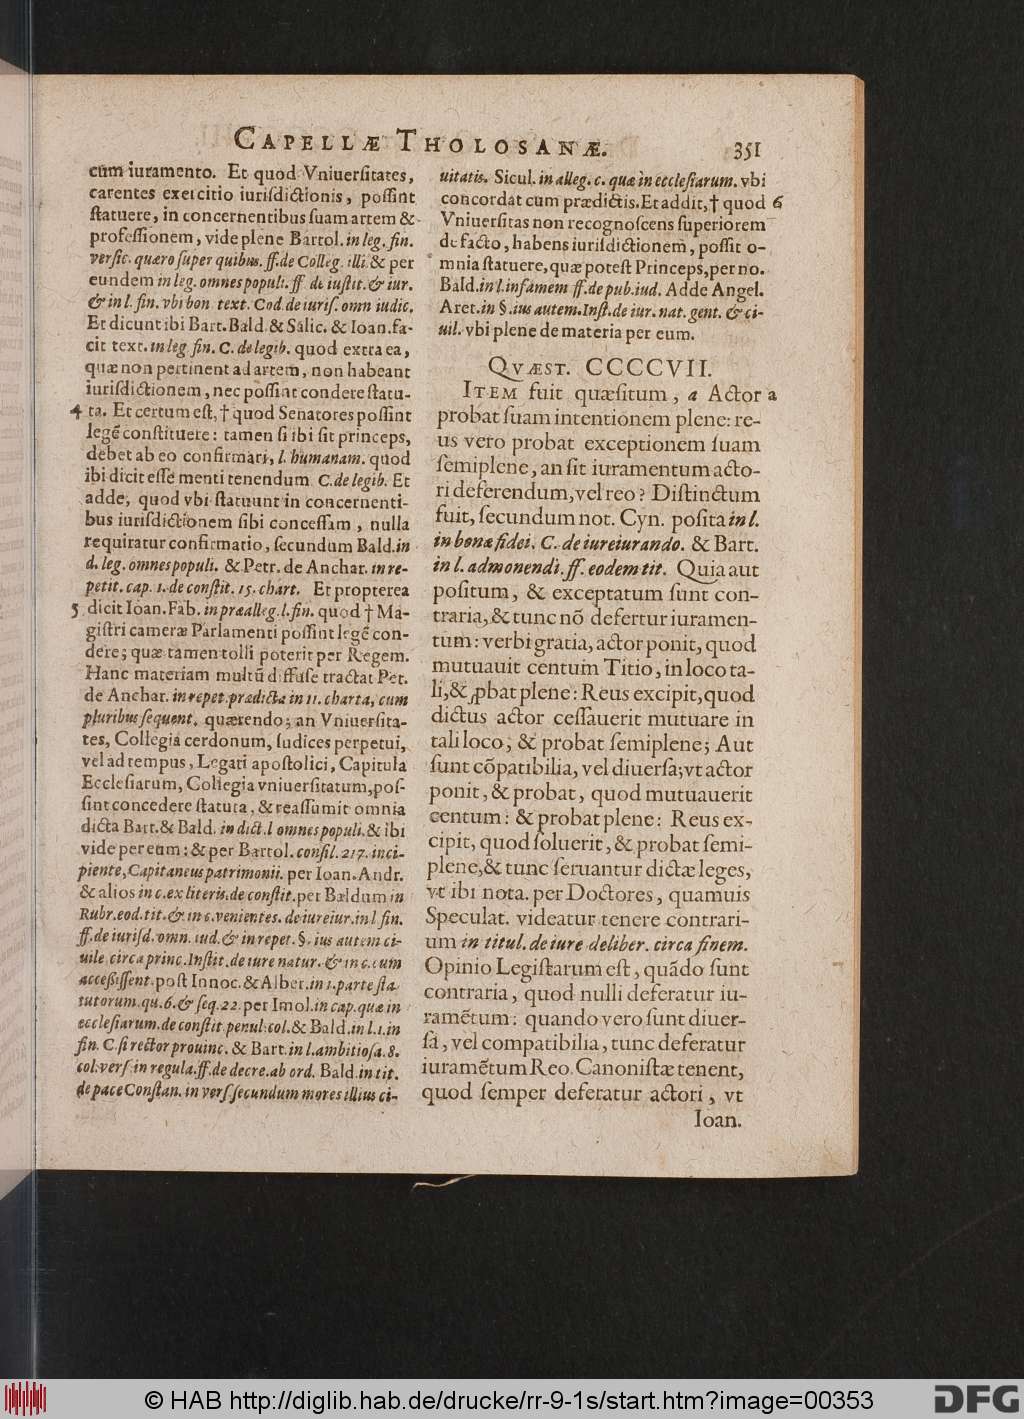 CAPELLÆ THOLOSANÆ. 351
cum iuramento. Et quod Vniuerſitates,
carentes exercitio iuriſdictionis, poſſint
ſtatuere, in concernentibus ſuam artem &
profeſſionem, vide plene Bartol. in leg. fin.
verſic. quæro ſuper quibus. ff. de Colleg. illi. & per
eundem in leg. omnes populi. ff. de iuſtit. & iur.
& in l. fin. vbi bon. text. Cod. de iuriſ. omn iudic.
Et dicunt ibi Bart. Bald. & Salic. & Ioan. fa-
cit text. in leg fin. C. de legib. quod extra ea,
quæ non pertinent ad artem, non habeant
iuriſdictionem, nec poſſint condere ſtatu-
4 ta. Et certum eſt, † quod Senatores poſſint
legẽ conſtituere: tamen ſi ibi ſit princeps,
debet ab eo confirmari, l. humanam. quod
ibi dicit eſſe menti tenendum. C. de legib. Et
adde, quod vbi ſtatuunt in concernenti-
bus iuriſdictionem ſibi conceſſam, nulla
requiratur confirmatio, ſecundum Bald. in
d. leg. omnes populi. & Petr. de Anchar. in re-
petit. cap. 1. de conſtit. 15. chart. Et propterea
5 dicit Ioan. Fab. in præalleg. l. fin. quod † Ma-
giſtri cameræ Parlamenti poſſint legẽ con-
dere; quæ tamen tolli poterit per Regem.
Hanc materiam multũ diffuſe tractat Pet.
de Anchar. in repet. prædicta in 11. charta, cum
pluribus ſequent. quærendo; an Vniuerſita-
tes, Collegia cerdonum, iudices perpetui,
vel ad tempus, Legati apoſtolici, Capitula
Eccleſiarum, Collegia vniuerſitatum, poſ-
ſint concedere ſtatuta, & reaſſumit omnia
dicta Bart. & Bald. in dict. l omnes populi. & ibi
vide per eum: & per Bartol. conſil. 217. inci-
piente, Capitaneus patrimonii. per Ioan. Andr.
& alios in c. ex literis. de conſtit. per Baldum in
Rubr. eod. tit. & in c. venientes. de iureiur. in l fin.
ff. de iuriſd. omn. iud. & in repet. §. ius autem ci-
uile, circa princ. Inſtit. de iure natur. & in c. cum
acceßiſſent. poſt Innoc. & Alber. in 1. parte ſta-
tutorum. qu. 6. & ſeq. 22. per Imol. in cap. quæ in
eccleſiarum. de conſtit. penul. col. & Bald. in l. 1. in
fin. C. ſi rector prouinc. & Bart. in l. ambitioſa. 8.
col. verſ. in regula. ff. de decre. ab ord. Bald. in tit.
de pace Conſtan. in verſ. ſecundum mores illius ci-
uitatis. Sicul. in alleg. c. quæ in eccleſiarum. vbi
concordat cum prædictis. Et addit, † quod 6
Vniuerſitas non recognoſcens ſuperiorem
de facto, habens iuriſdictionem, poſſit o-
mnia ſtatuere, quæ poteſt Princeps, per no.
Bald. in l. infamem ff. de pub. iud. Adde Angel.
Aret. in §. ius autem. Inſt. de iur. nat. gent. & ci-
uil. vbi plene de materia per eum.
QVÆST. CCCCVII.
ITEM fuit quæſitum, a Actor a
probat ſuam intentionem plene: re-
us vero probat exceptionem ſuam
ſemiplene, an ſit iuramentum acto-
ri deferendum, vel reo? Diſtinctum
fuit, ſecundum not. Cyn. poſita in l.
in bonæ fidei. C. de iureiurando. & Bart.
in l. admonendi. ff. eodem tit. Quia aut
poſitum, & exceptatum ſunt con-
traria, & tunc nõ defertur iuramen-
tum: verbi gratia, actor ponit, quod
mutuauit centum Titio, in loco ta-
li, & ꝓbat plene: Reus excipit, quod
dictus actor ceſſauerit mutuare in
tali loco, & probat ſemiplene; Aut
ſunt cõpatibilia, vel diuerſa; vt actor
ponit, & probat, quod mutuauerit
centum: & probat plene: Reus ex-
cipit, quod ſoluerit, & probat ſemi-
plene, & tunc ſeruantur dictæ leges,
vt ibi nota. per Doctores, quamuis
Speculat. videatur tenere contrari-
um in titul. de iure deliber. circa finem.
Opinio Legiſtarum eſt, quãdo ſunt
contraria, quod nulli deferatur iu-
ramẽtum: quando vero ſunt diuer-
ſa, vel compatibilia, tunc deferatur
iuramẽtum Reo. Canoniſtæ tenent,
quod ſemper deferatur actori, vt
Ioan.
© HAB http://diglib.hab.de/drucke/rr-9-1s/start.htm?image=00353
DFG